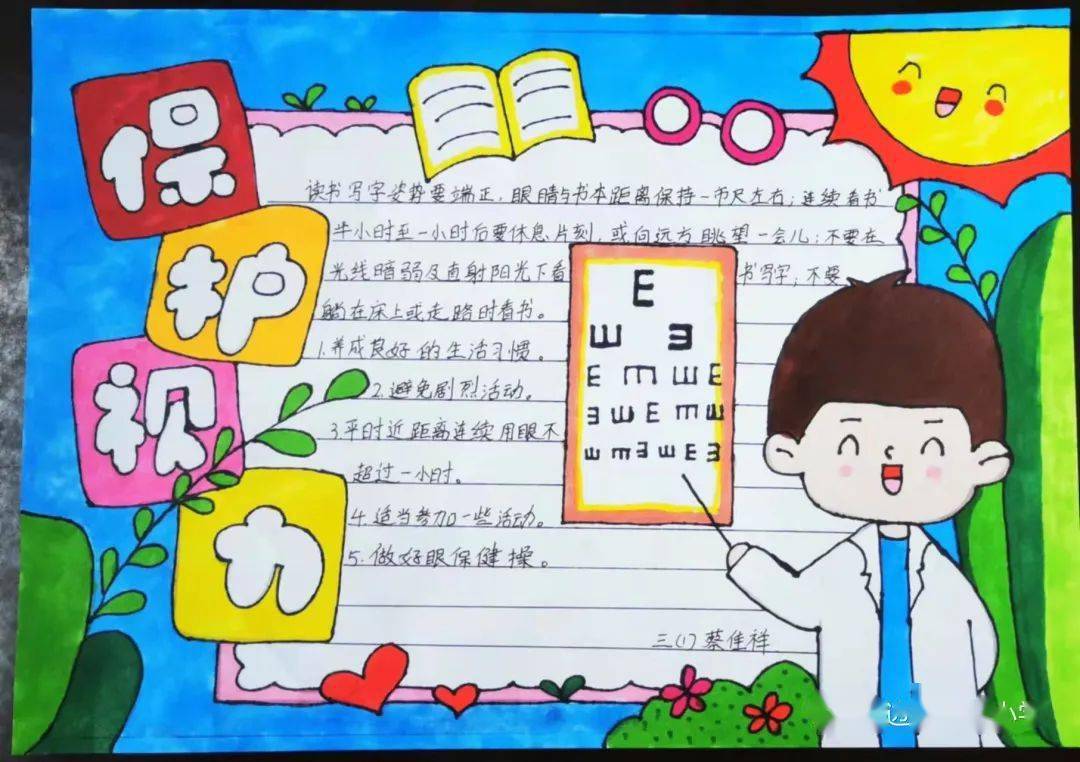 保护视力
读书写字姿势要端正，眼睛与书本距离保持一市尺左右；连续看书
半小时至一小时后要休息片刻，或向远方眺望一会儿；不要在
光线暗弱及直射阳光下看书写字；不要
躺在床上或走路时看书。
1.养成良好的生活习惯。
2.避免剧烈活动。
3.平时近距离连续用眼不
超过一小时。
4.适当参加一些活动。
5.做好眼保健操。
E
ш ᴲ
E m ш E
ᴲ ш E m ш
ш m ᴲ ш E ᴲ
三(1)蔡佳祥